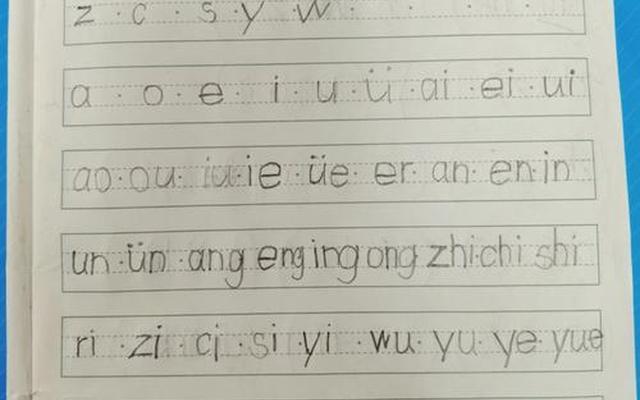 z c s y w
a o e i u ü ai ei ui
ao ou iu ie üe er an en in
un ün ang eng ing ong zhi chi shi
ri zi ci si yi wu yu ye yue